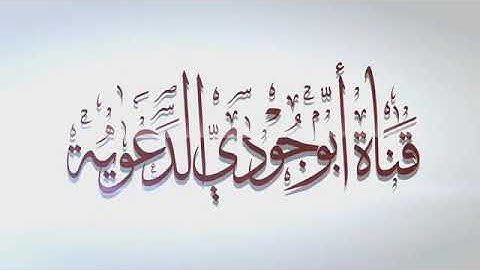 قَنَاةُ أَبُو جُودِيٍّ الدَّعَوِيَّة